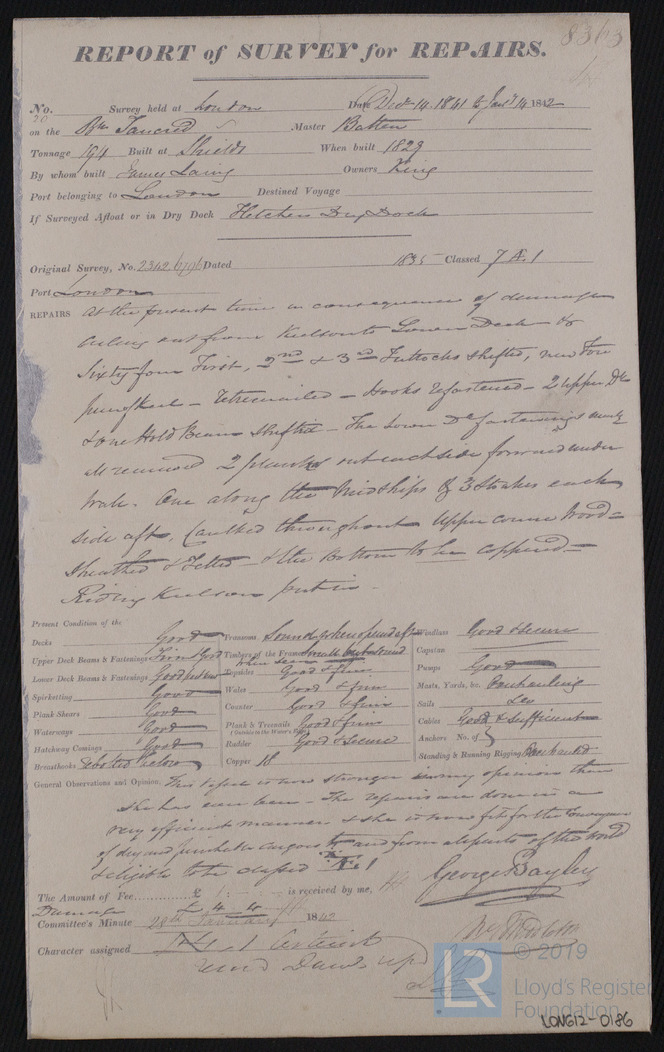 8363
REPORT of SURVEY for REPAIRS.
No. 20 Survey held at London Date Decr 14. 1841 to Jany 14 1842
on the Bn Tancred Master Batten
Tonnage 194 Built at Shields When built 1829
By whom built James Laing Owners King
Port belonging to London Destined Voyage
If Surveyed Afloat or in Dry Dock Fletchers Dry Dock
Original Survey, No. 2342 Dated 1835 Classed 7 Æ 1
Port London
REPAIRS At the present time in consequence of damage
ceiling out from Keelson to Lower Deck &
Sixty four First, 2nd & 3rd Futtocks shifted, new Fore
Keel – retreenailed – Hooks refastened – 2 upper Dk
& one Hold Beam shifted – The Lower Dk fastenings
all renewed 2 planks out each side forward under
Wale. One along the Midships & 3 Strakes each
side aft, Caulked throughout Upper course Wood
Sheathed & Felted – & the Bottom to be coppered –
Riding Keelson put in –
Present Condition of the
Decks Good
Upper Deck Beams & Fastenings Firm & Good
Lower Deck Beams & Fastenings Good
Spirketting Good
Plank Shears Good
Waterways Good
Hatchway Comings Good
Breasthooks below
Transoms Sound
Timbers of the Frame when seen
Topsides Good & firm
Wales Good & firm
Counter Good & firm
Plank & Treenails Good & firm
(Outside to the Water's Edge)
Rudder Good & Secure
Copper 18
Windlass Good & Secure
Capstan
Pumps Good
Masts, Yards, &c. Overhauling
Sails Do
Cables Good & Sufficient
Anchors No. of
Standing & Running Rigging Overhauled
General Observations and Opinion, This Vessel is now stronger in my opinion than
she has ever been – The repairs are done in a
very efficient manner & she is now fit for the Conveyance
of dry and perishable cargoes to and from all parts of the World
& eligible to be classed Æ 1
George Bayley
The Amount of Fee £ 1 : is received by me,
Damage £ 4 4
Committee's Minute 28th January 1842
Character assigned Æ 1
© 2019
LR
Lloyd's Register
Foundation
LON612-0186